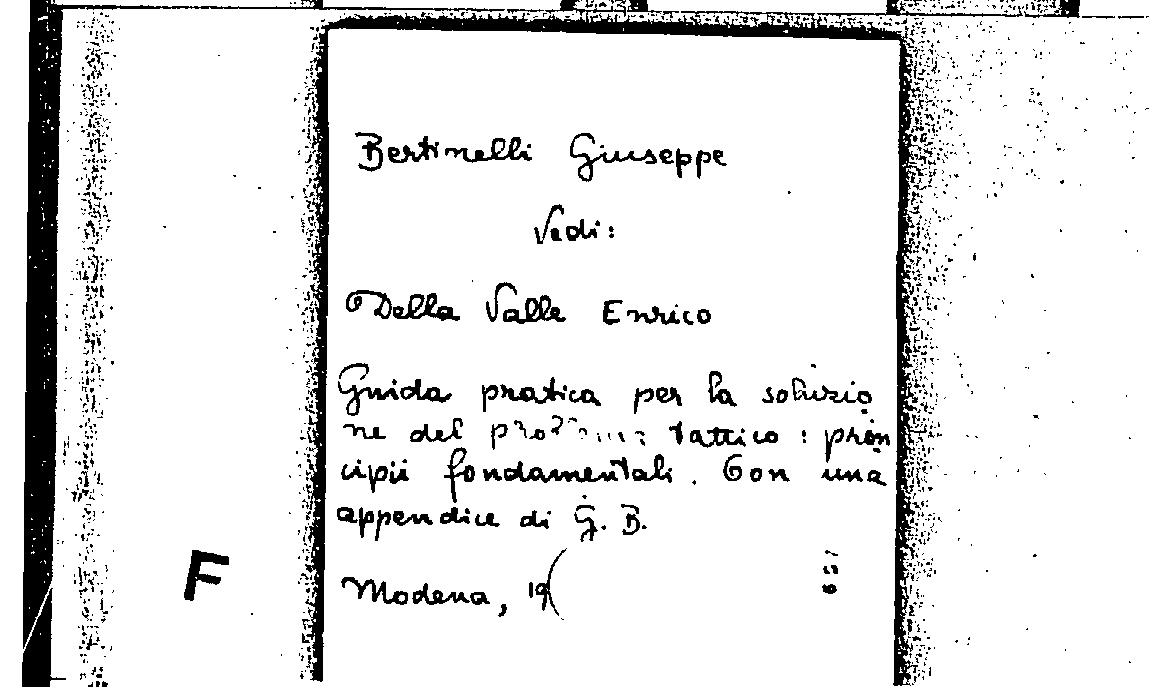 Bertinelli Giuseppe
Vedi:
Della Valle Enrico
Guida pratica per la soluzio
ne del tattico : prin
cipii fondamentali. Con una
appendice di G. B.
F
Modena, 19(